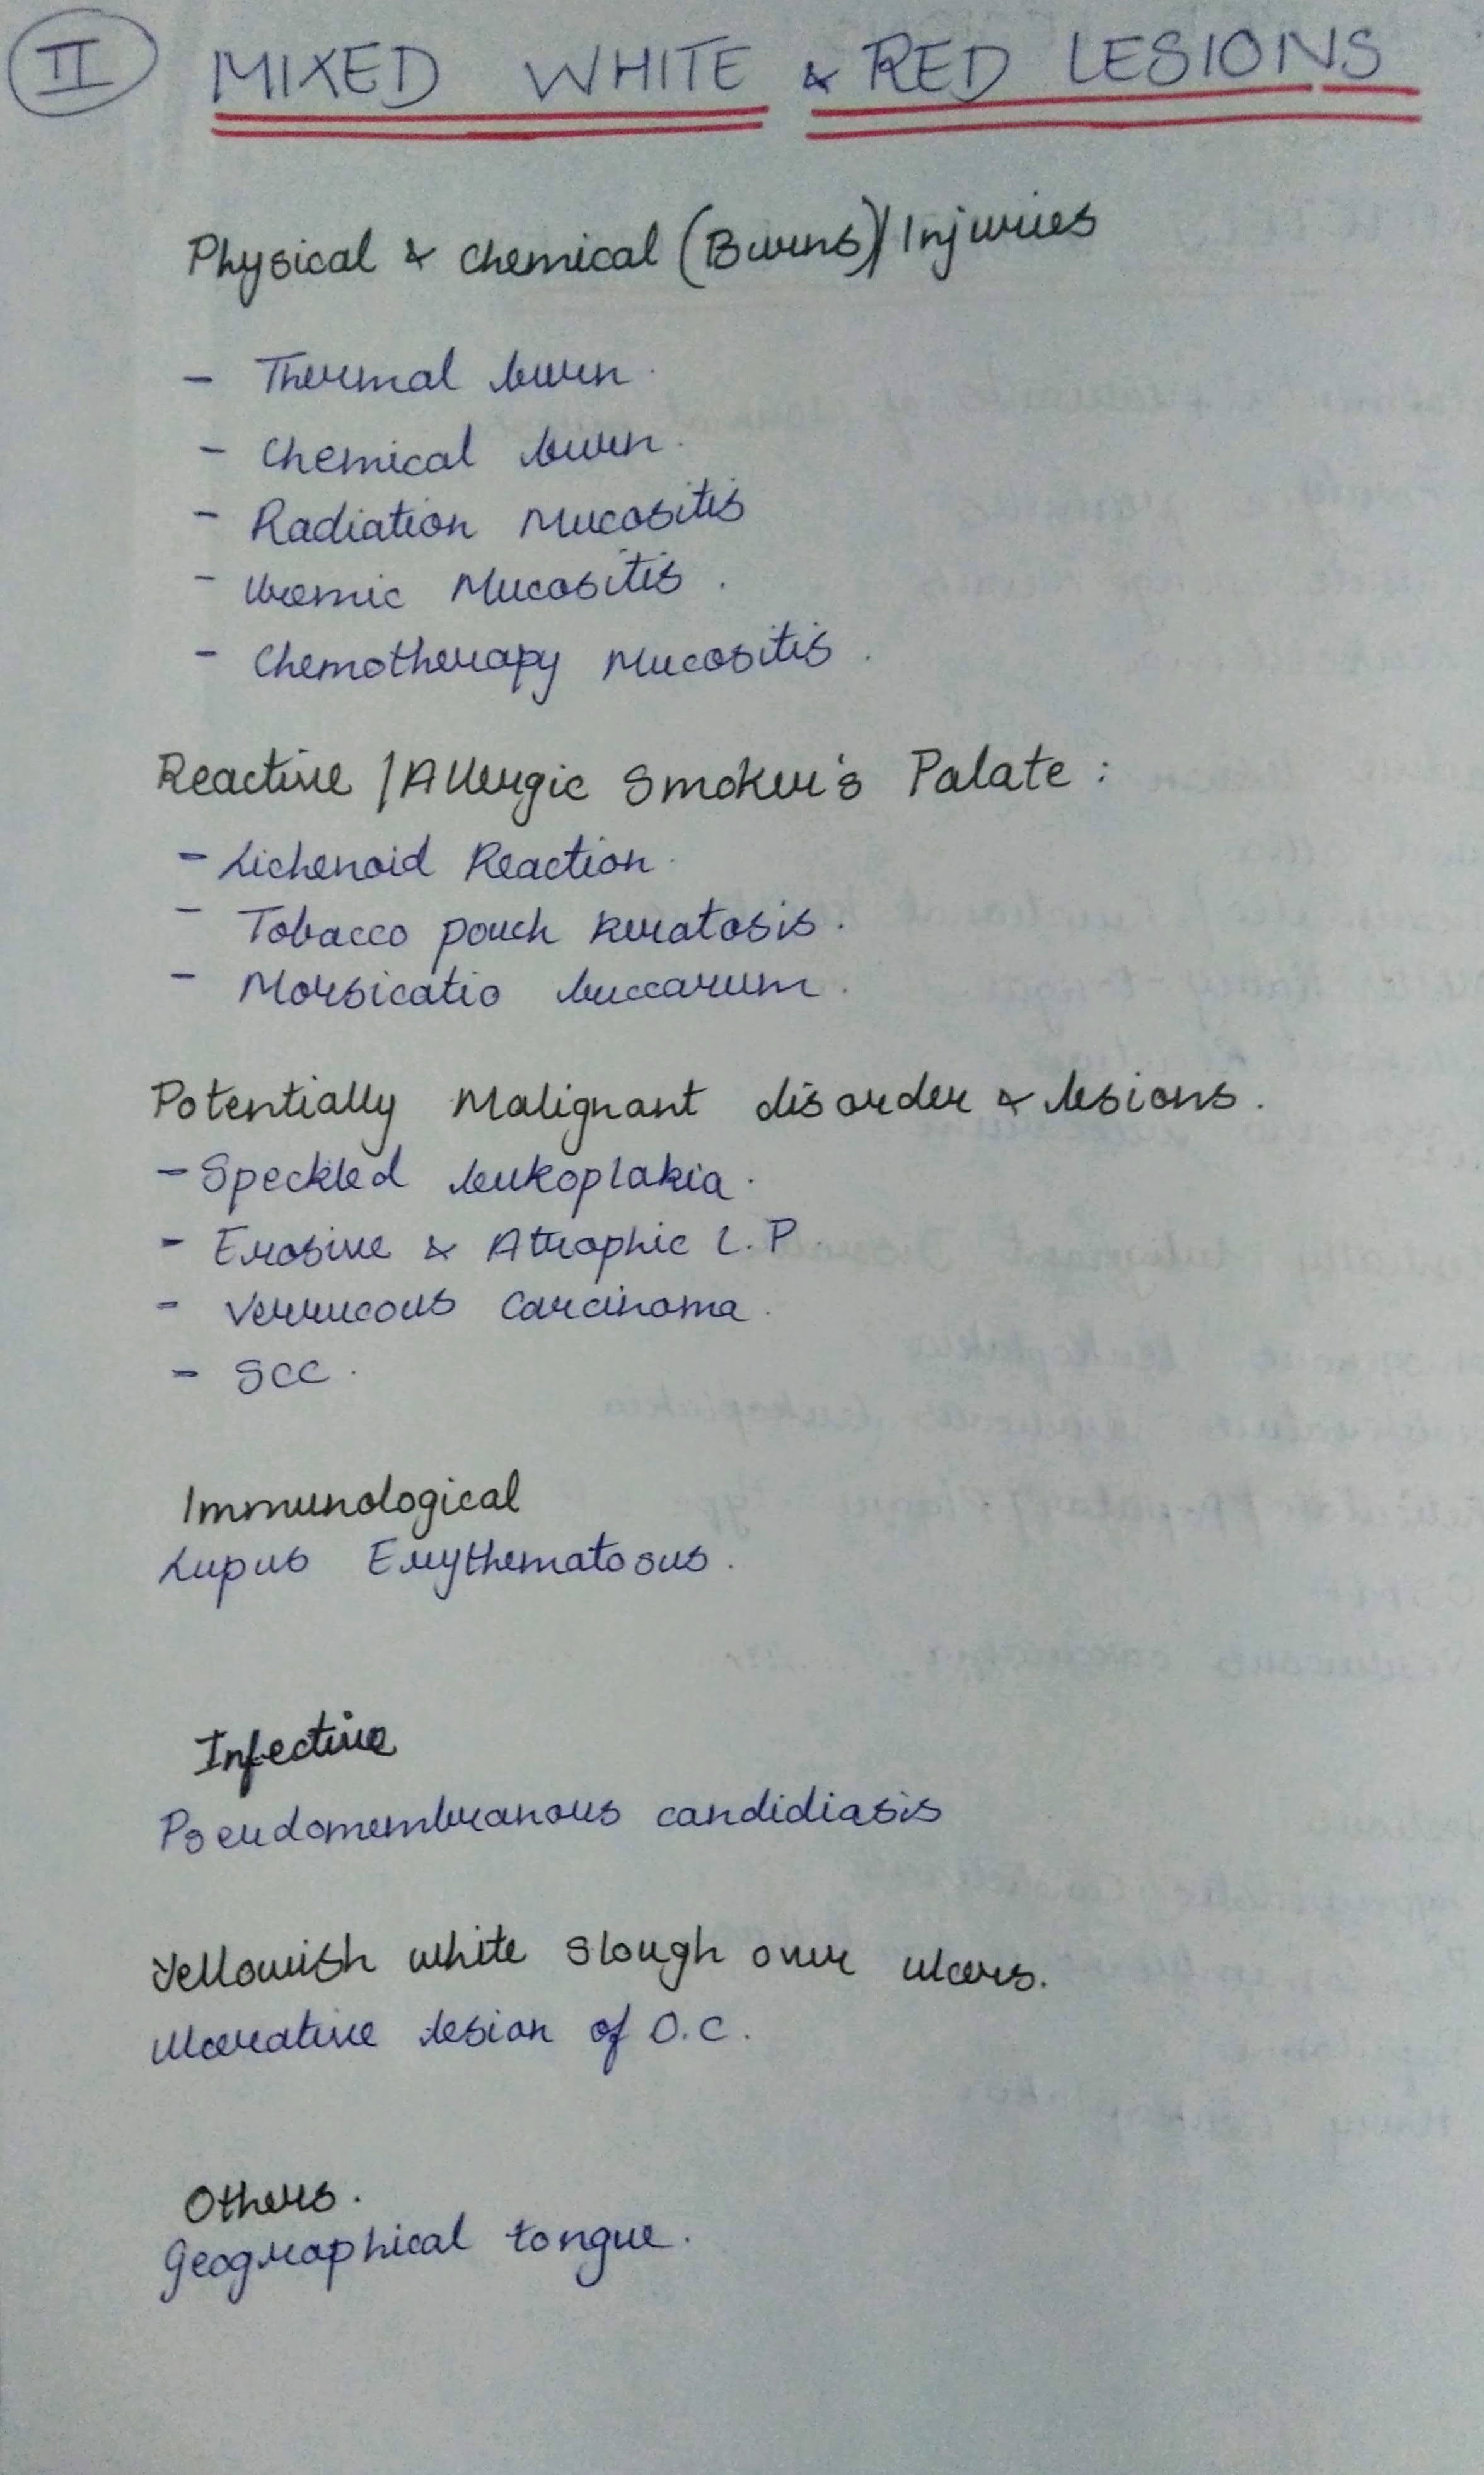 II MIXED WHITE & RED LESIONS
Physical & Chemical (Burns)/Injuries
- Thermal burn.
- Chemical burn.
- Radiation Mucositis
- Uremic Mucositis.
- Chemotherapy Mucositis.
Reactive /Allergic Smoker's Palate:
- Lichenoid Reaction.
- Tobacco pouch keratosis.
- Morsicatio buccarum.
Potentially Malignant disorder & lesions.
- Speckled leukoplakia.
- Erosive & Atrophic L.P.
- Verrucous Carcinoma.
- SCC.
Immunological
Lupus Erythematosus.
Infective
Pseudomembranous candidiasis
Yellowish white slough over ulcers.
Ulcerative lesion of O.C.
Others.
Geographical tongue.